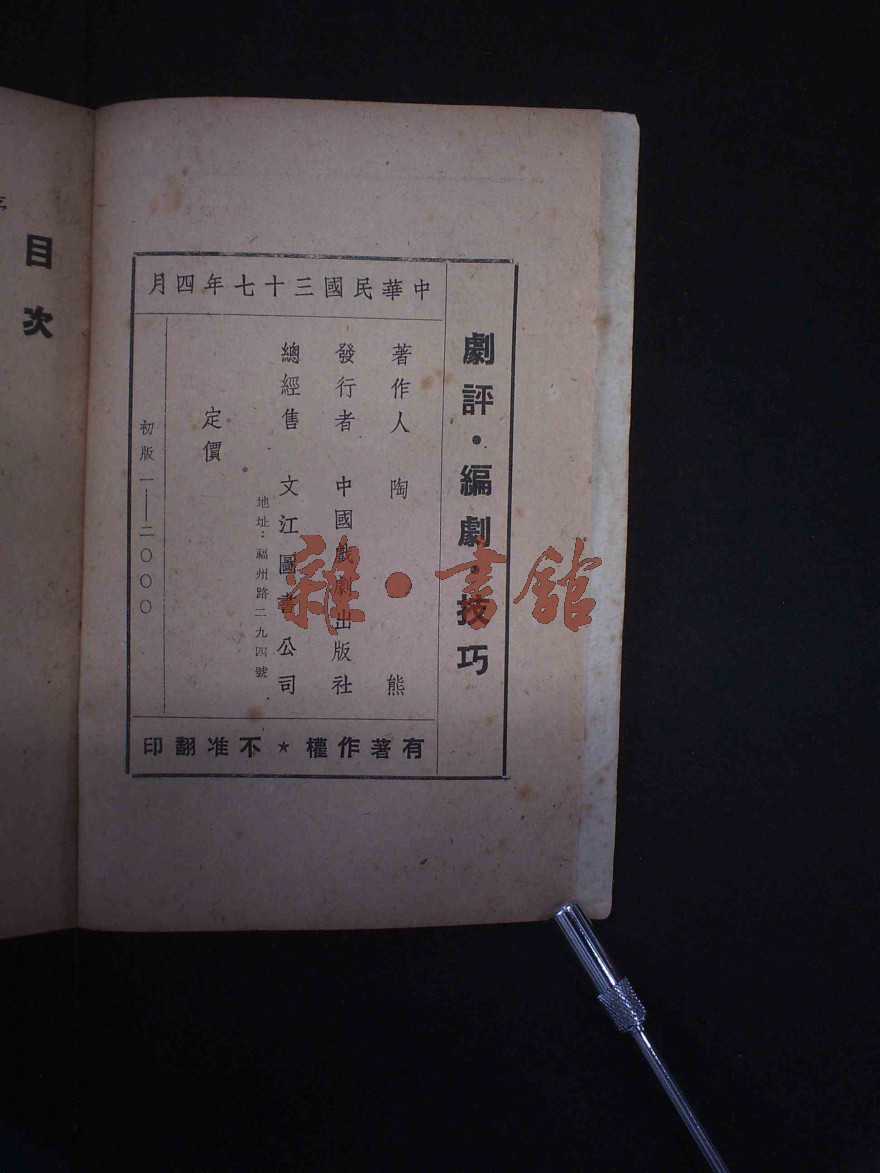 中華民國三十七年四月
劇評・編劇・技巧
著作人 陶熊
發行者 中國戲劇出版社
總經售 文江圖書公司
地址：福州路二九四號
定價
初版一——二〇〇〇
有著作權★不准翻印
目次
雜・書館